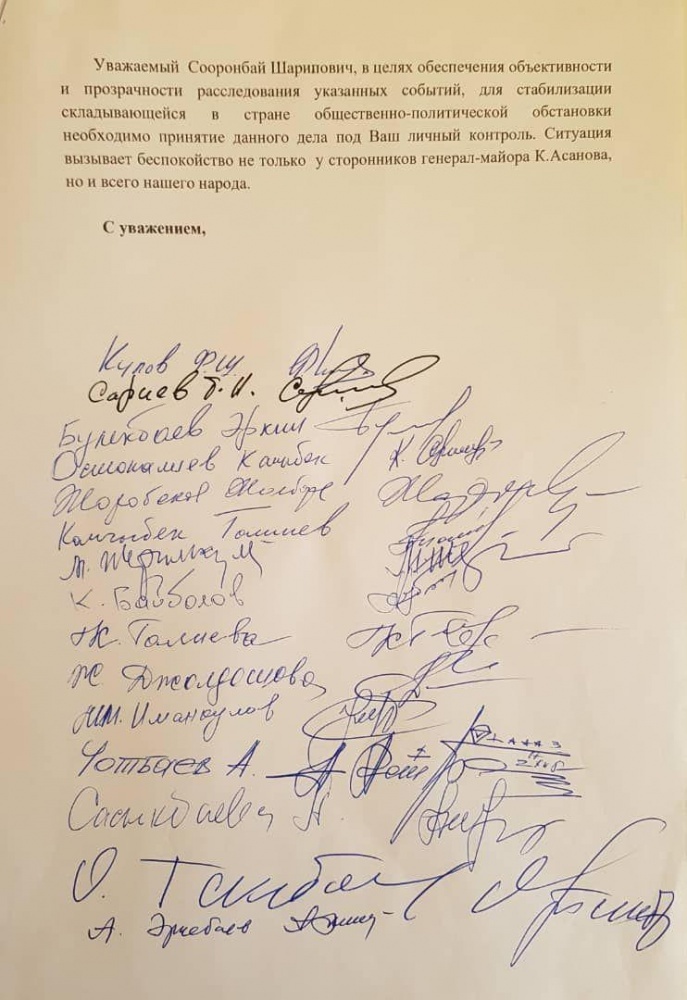 Уважаемый Сооронбай Шарипович, в целях обеспечения объективности
и прозрачности расследования указанных событий, для стабилизации
складывающейся в стране общественно-политической обстановки
необходимо принятие данного дела под Ваш личный контроль. Ситуация
вызывает беспокойство не только у сторонников генерал-майора К.Асанова,
но и всего нашего народа.
С уважением,
Кулов Ф.Ш.
Сариев Т.А.
Булекбаев Эркин
Осмоналиев Канибек
Жоробеков Жолборс
Камчыбек Толиев
М.
К. Байболов
Ж. Галиева
Ж. Джолдошова
Иманкулов
Чотбаев А.
Сасыкбаева А.
О.
А. Эркебаев